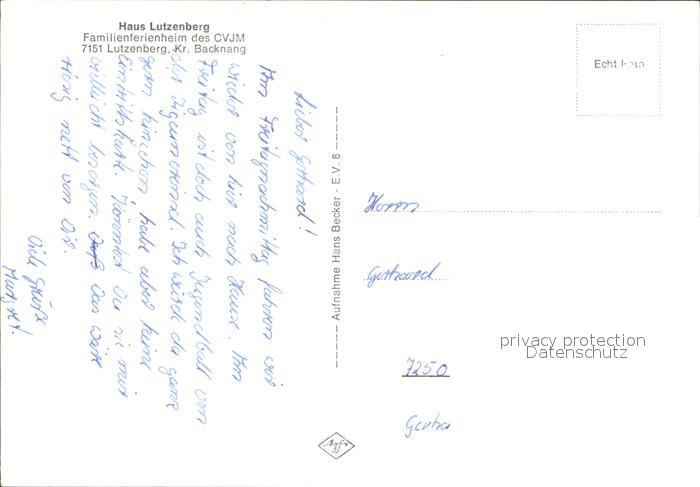 Haus Lutzenberg
Familienferienheim des CVJM
7151 Lutzenberg, Kr. Backnang
Lieber Gothard!
Am Freitagnachmittag fahren wir
wieder von hier nach Hause. Am
Freitag ist doch auch Jugendball von
der . Ich würde da ganz
gern hingehen habe aber keine
Eintrittskarte. Könntest Du sie mir
vielleicht besorgen. Das wäre
riesig nett von Dir.
Viele Grüße
Margret.
Aufnahme Hans Becker - E.V. 8
Echt Foto
Herrn
Gothard
7250
privacy protection
Datenschutz
Agfa